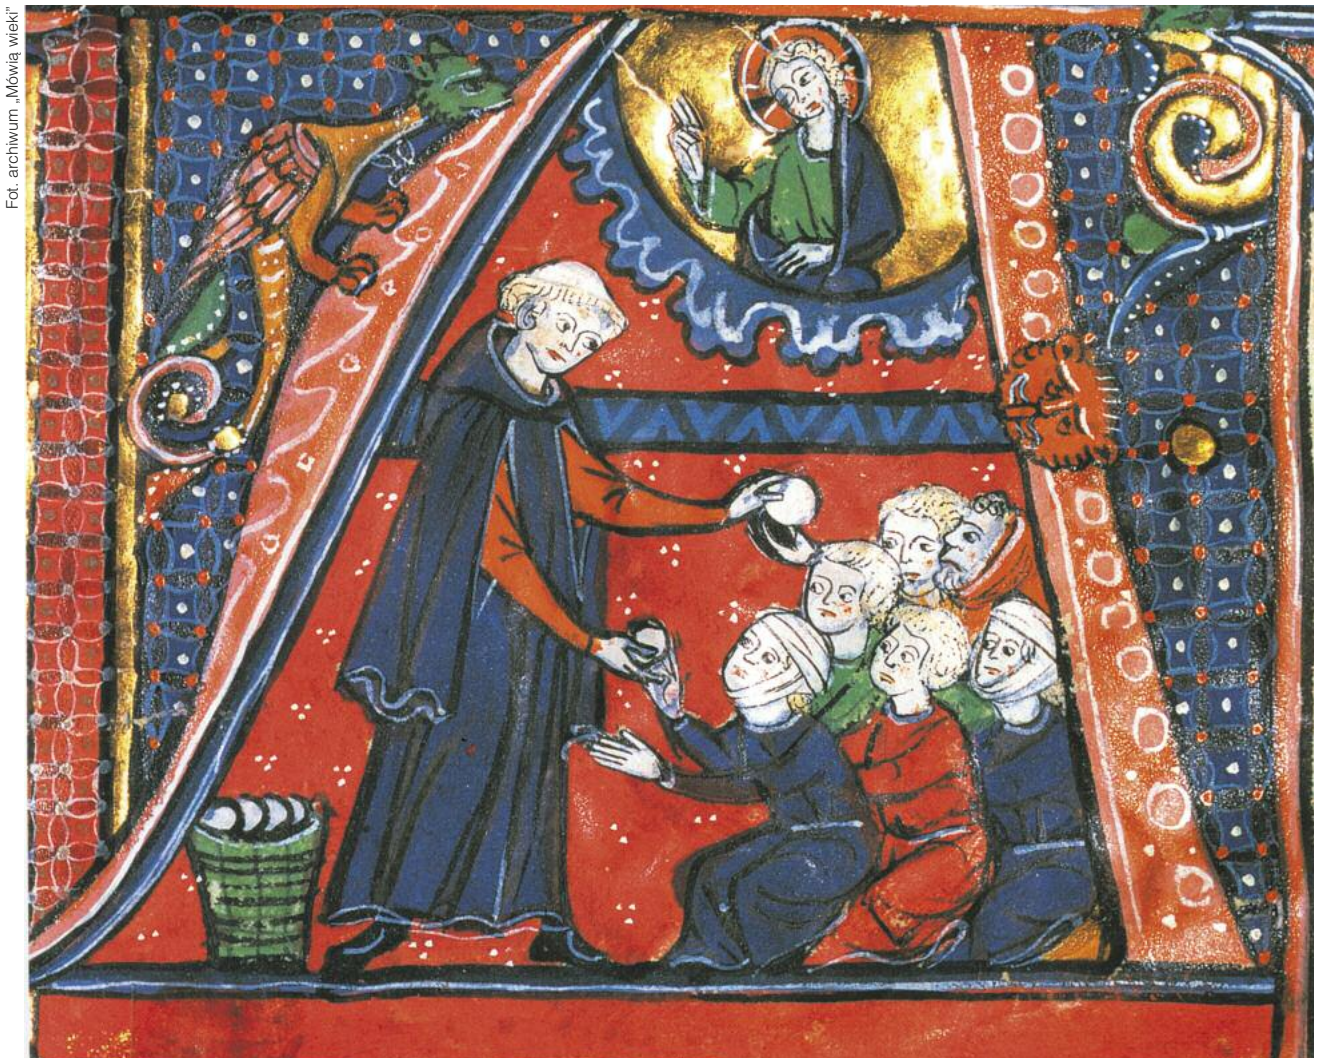 Fot. archiwum „Mówią wieki”